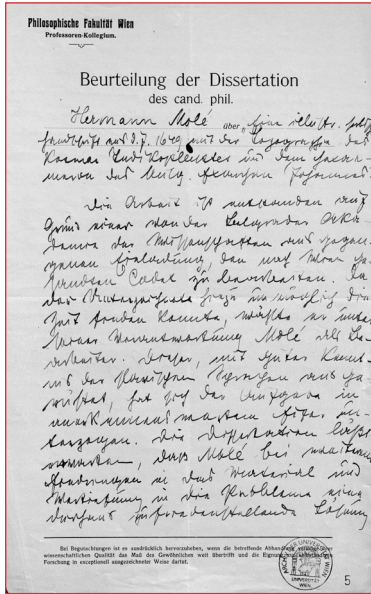 Philosophische Fakultät Wien
Professoren-Kollegium.
Beurteilung der Dissertation
des cand. phil.
Hermann Molé über „Eine illustr. serb.
Handschrift aus d. J. 1649 mit der Topographie des
Kosmas Indikopleustes und dem Hexae-
meron des bulg. Exarchen Johannes“
Die Arbeit ist entstanden auf
Grund einer von der Belgrader Aka-
demie der Wissenschaften ausgegan-
genen Einladung, den nach Wien ge-
sandten Codex zu bearbeiten. Da
der Unterzeichnete hiezu unmöglich die
Zeit finden konnte, wählte er unter
seiner Verantwortung Molé als Be-
arbeiter. Dieser, mit guter Kennt-
nis der slavischen Sprachen ausge-
rüstet, hat sich der Aufgabe in
anerkennenswertem Eifer un-
terzogen. Die Dissertation lässt
erwarten, dass Molé bei weiterem
Eindringen in das Material und
Vertiefung in die Probleme eine
durchaus zufriedenstellende Lösung
Bei Begutachtungen ist es ausdrücklich hervorzuheben, wenn die betreffende Abhandlung
wissenschaftlichen Qualität das Maß des Gewöhnlichen weit übertrifft und die Eignung
Forschung in exceptionell ausgezeichneter Weise dartut.
ARCHIV DER UNIVERSITÄT WIEN
UNIVERSITÄT
WIEN
5